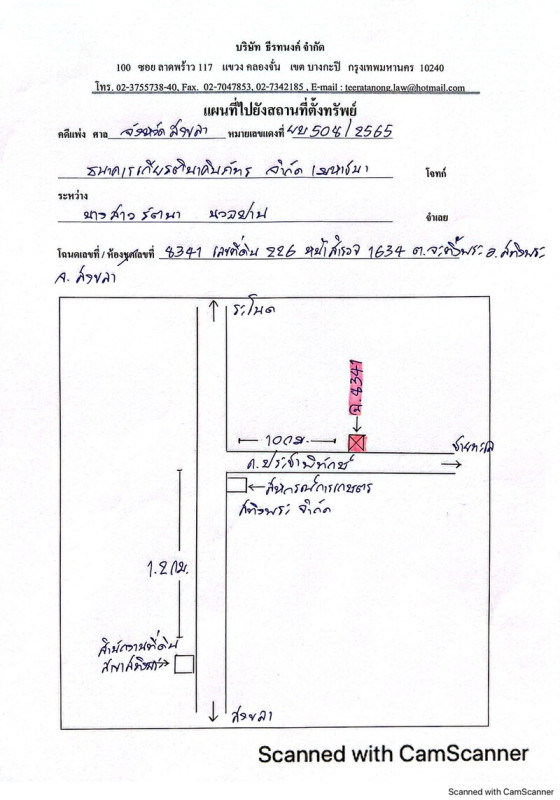 บริษัท ธีรทนงค์ จำกัด
100 ซอย ลาดพร้าว 117 แขวง คลองจั่น เขต บางกะปิ กรุงเทพมหานคร 10240
โทร. 02-3755738-40, Fax. 02-7047853, 02-7342185 , E-mail : teeratanong.law@hotmail.com
แผนที่ไปยังสถานที่ตั้งทรัพย์
คดีแพ่ง ศาล จังหวัดสงขลา หมายเลขแดงที่ ผบ 508/2565
ธนาคารเกียรตินาคินภัทร จำกัด (มหาชน) โจทก์
ระหว่าง
นางสาวรัตนา นวลปาน จำเลย
โฉนดเลขที่ / ห้องชุดเลขที่ 8341 เลขที่ดิน 226 หน้าสำรวจ 1634 ต.จะทิ้งพระ อ.สทิงพระ
จ. สงขลา
ระโนด
ฉ.8341
100ม.
ชายทะเล
ถ.ประชาพิทักษ์
สหกรณ์การเกษตร
สทิงพระ จำกัด
1.2 กม.
สำนักงานที่ดิน
สาขาสทิงพระ
สงขลา
Scanned with CamScanner
Scanned with CamScanner